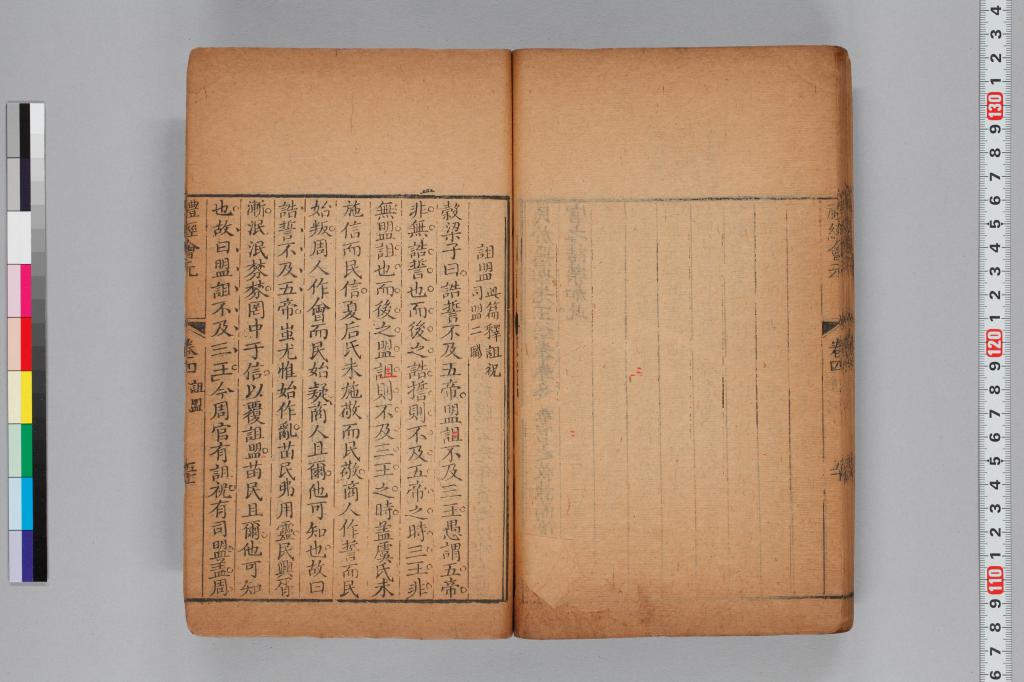 詛盟此篇釋詛祝
司盟二職
穀梁子曰誥誓不及五帝盟詛不及三王愚謂五帝
非無誥誓也而後之誥誓則不及五帝之時三王非
無盟詛也而後之盟詛則不及三王之時蓋虞氏未
施信而民信夏后氏未施敬而民敬商人作誓而民
始叛周人作會而民始疑商人且爾他可知也故曰
誥誓不及五帝蚩尤惟始作亂苗民弗用靈民興胥
漸泯泯棼棼罔中于信以覆詛盟苗民且爾他可知
也故曰盟詛不及三王今周官有詛祝有司盟蓋周
禮經會元
卷四
詛盟
卷四
4 3 2 1 130 9 8 7 6 5 4 3 2 1 120 9 8 7 6 5 4 3 2 1 110 9 8 7 6